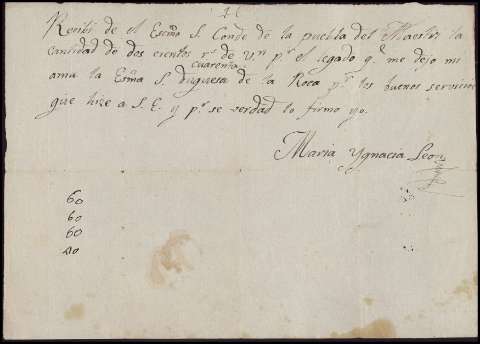 Recibi de el Escmo S. Conde de la puebla del Maestre la
cantidad de dos cientos r.s de v.n p.r el legado q.e me dejo mi
cuarenta
ama la Esma S. duquesa de la Roca p.r los buenos servicios
que hize a S. E. y p.r se verdad lo firmo yo.
Maria Ygnacia Leon
60
60
60